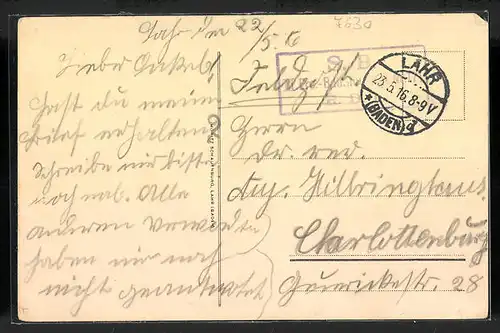 Lahr den 22
/5. 16
Lieber Onkel!
Hast du meinen
Brief erhalten
Schreibe mir bitte
noch mal. Alle
anderen Verwandte
haben mir noch
nicht geantwortet
7630
S. B.
Feldp
LAHR
23.5.16.8-9V
*(BADEN)d
Herrn
Dr. med.
Aug. Hilbringhaus
Charlottenburg
Guerickestr. 28